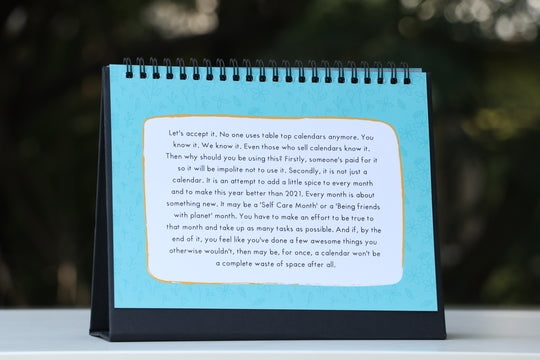 Let's accept it. No one uses table top calendars anymore. You
know it. We know it. Even those who sell calendars know it.
Then why should you be using this? Firstly, someone's paid for it
so it will be impolite not to use it. Secondly, it is not just a
calendar. It is an attempt to add a little spice to every month
and to make this year better than 2021. Every month is about
something new. It may be a 'Self Care Month' or a 'Being friends
with planet' month. You have to make an effort to be true to
that month and take up as many tasks as possible. And if, by the
end of it, you feel like you've done a few awesome things you
otherwise wouldn't, then may be, for once, a calendar won't be
a complete waste of space after all.